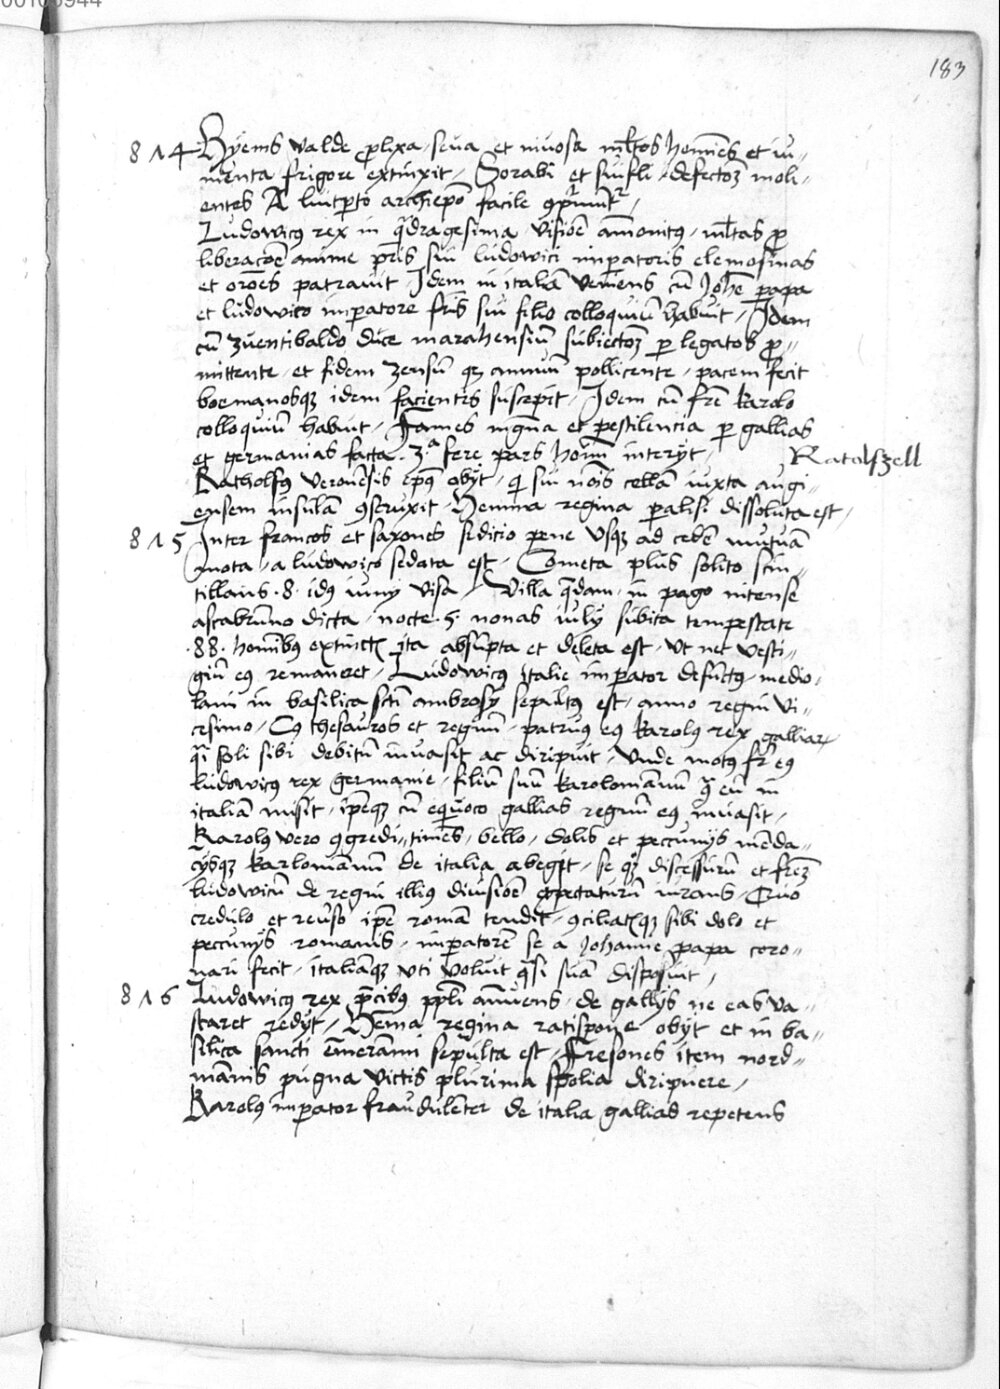 183
814 Hyems valde prolixa seva et nivosa mltos homines et iu-
menta frigore extinxit, Sorabi et Siusli, defectoȝ moli-
entes A luitperto archiepo facile 9primunt,
Ludowic9 rex in qdragesima, visioe amonit9, mltas pro
liberacoe anime pris sui ludowici imperatoris elemosinas
et oroes patravit, Idem in italia veniens cu Johe papa
et ludowico imperatore fris sui filio colloquiu habuit, Idem
cu zuentibaldo duce marahensiu subiectoȝ per legatos pro-
mittente, et fidem zensu qȝ annuu pollicente, pacem fecit
boemanosqȝ idem facientes suscepit, Idem cu fre karolo
colloquiu habuit, Fames mgna et pestilencia per gallias
et germanias facta. 3.a fere pars hoim interijt,
Ratolfzell
Ratholf9 Veronensis eps obijt, qi sui nois cella iuxta augi-
ensem insula 9struxit, Hemma regina paralisi dissoluta est,
815 Inter francos et saxones seditio pene usqȝ ad cede mutua
mota, a ludowico sedata est, Cometa plus solito scin-
tillans .8. id9 iunij visa, Villa qdam in pago nitense
ascabrunno dicta, nocte .5. nonas iulij subita tempestate
.88. homibus extinctis ita absupta et deleta est, Ut nec vesti-
giu ei9 remaneret, Ludowic9 italie imperator defunct9, medio-
lani in basilica scti ambrosij sepult9 est, anno regni vi-
cesimo, Ci9 thesauros et regnum, patruus ei9 karol9 rex galliar
qsi soli sibi debitu invasit ac diripuit, Unde mot9 fr ei9
ludowic9 rex germanie, filiu suu karolomannu 9tra eu in
italia misit, ipseqȝ cu equivoco gallias regnu ei9 invasit,
Karol9 vero 9gredi timens, bello, dolis et peccunijs menda-
cijsqȝ karlomannu de italia abegit, se qȝ discessuru et freȝ
ludowicu de regni illi9 divisioe expectaturu iurans, Quo
credulo et reverso ipe roma tendit, 9ciliatisqȝ sibi dolo et
peccunijs romanis, imperatore se a Johanne papa coro-
nari fecit, italiaqȝ uti voluit qsi sua disposuit,
816 Ludowic9 rex pcib9 ppli annuens, de gallijs ne eas va-
staret redijt, Hema regina ratispone obijt et in ba-
silica sancti Emerammi sepulta est, Fresones item nord-
mannis pugna victis plurima spolia diripuere,
Karol9 imperator fraudulenter de italia gallias repetens